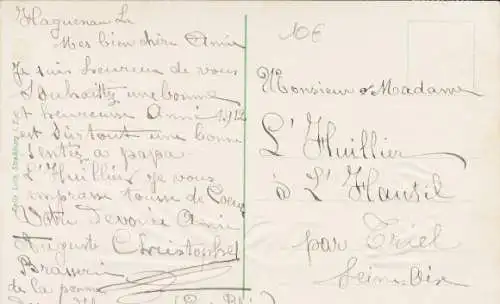 Haguenau Le
Mes bien chère Amie
Je suis heureux de vous
Souhaitz une bonne
et heureuse Anni 1912
est surtout une bonne
Sentés a papa
L'Huillier je vous
emprasse tousse de Coeur
Votre devouée Amie
Auguste Christophel
Brasserie
de la pomme
10€
Monsieur & Madame
L'Huillier
à L'Hautil
par Triel
Seine & Oise